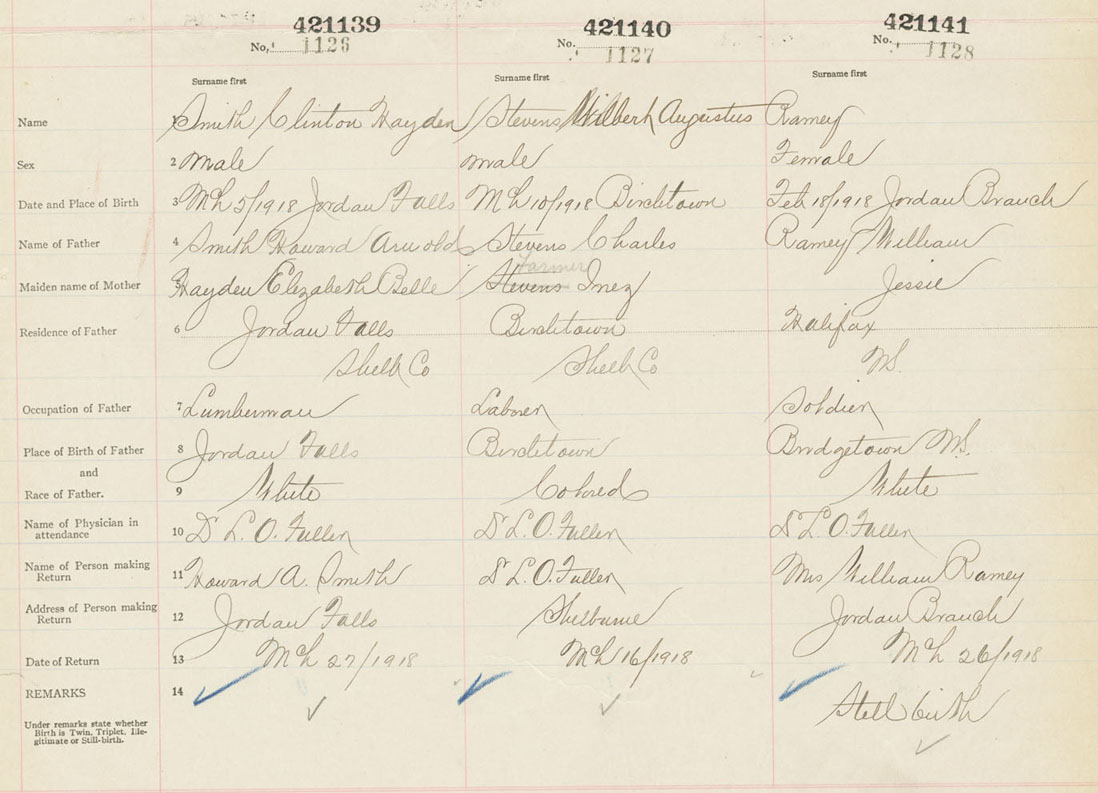 421139 421140 421141
No. 1126 No. 1127 No. 1128
Surname first Surname first Surname first
Name Smith Clinton Hayden Stevens Wilbert Augustus Ramey
Sex 2 Male Male Female
Date and Place of Birth 3 Mch 5/1918 Jordan Falls Mch 10/1918 Birchtown Feb 18/1918 Jordan Branch
Name of Father 4 Smith Howard Arnold Stevens Charles Ramey William
Farmer
Maiden name of Mother 5 Hayden Elizabeth Belle Stevens Inez Jessie
Residence of Father 6 Jordan Falls Birchtown Halifax
Shelb Co Shelb Co N.S.
Occupation of Father 7 Lumberman Laborer Soldier
Place of Birth of Father 8 Jordan Falls Birchtown Bridgetown N.S.
and
Race of Father. 9 White Colored White
Name of Physician in attendance 10 Dr L. O. Fuller Dr L. O. Fuller Dr L. O. Fuller
Name of Person making Return 11 Howard A. Smith Dr L. O. Fuller Mrs William Ramey
Address of Person making Return 12 Jordan Falls Shelburne Jordan Branch
Date of Return 13 Mch 27/1918 Mch 16/1918 Mch 26/1918
REMARKS 14 Still birth
Under remarks state whether
Birth is Twin, Triplet, Ille-
gitimate or Still-birth.